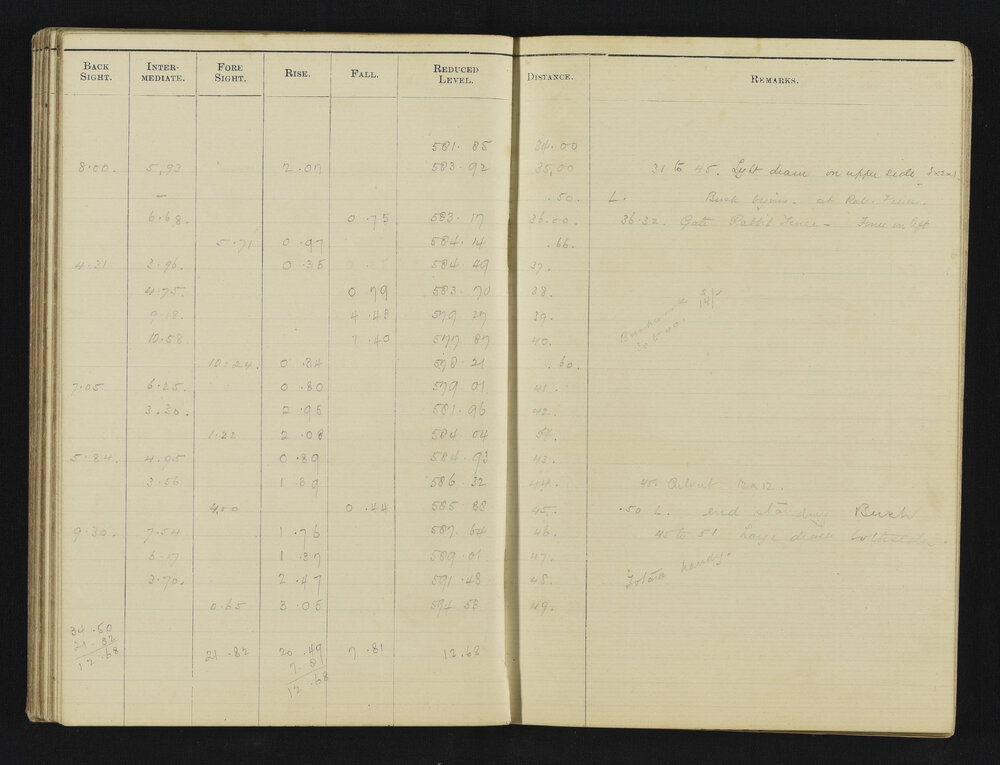 BACK SIGHT. INTER-MEDIATE. FORE SIGHT. RISE. FALL. REDUCED LEVEL. DISTANCE. REMARKS.
581.85 34.00
8.00. 5.93 2.07 583.92 35.00 31 to 45. Light drain on upper side
.50 L. Bush begins. at Rab. Fence.
6.68. 0.75 583.17 36.00. 36.32. Gate Rabbit Fence - Fence on left
5.71 0.97 584.14 .66.
4.31 3.96. 0.35 584.49 37.
4.75. 0.79 583.70 38.
9.18. 4.43 579.27 39.
10.58 1.40 577.87 40.
10.24. 0.34 578.21 .60.
7.05 6.25. 0.80 579.01 41.
3.30. 2.95 581.96 42.
1.22 2.08 584.04
5.84. 4.95 0.89 584.93 43.
3.56 1.39 586.32 44. 45. Culvert 12 x 12.
4.00 0.44 585.88 45. .50 L. end standing Bush
9.30. 7.54 1.76 587.64 46. 45 to 51 Large drain
6.17 1.37 589.01 47.
3.70. 2.47 591.48 48. Totara handy.
0.65 3.05 594.53 49.
34.50
21.82
12.68
21.82 20.49 7.81 12.68
7.81
12.68